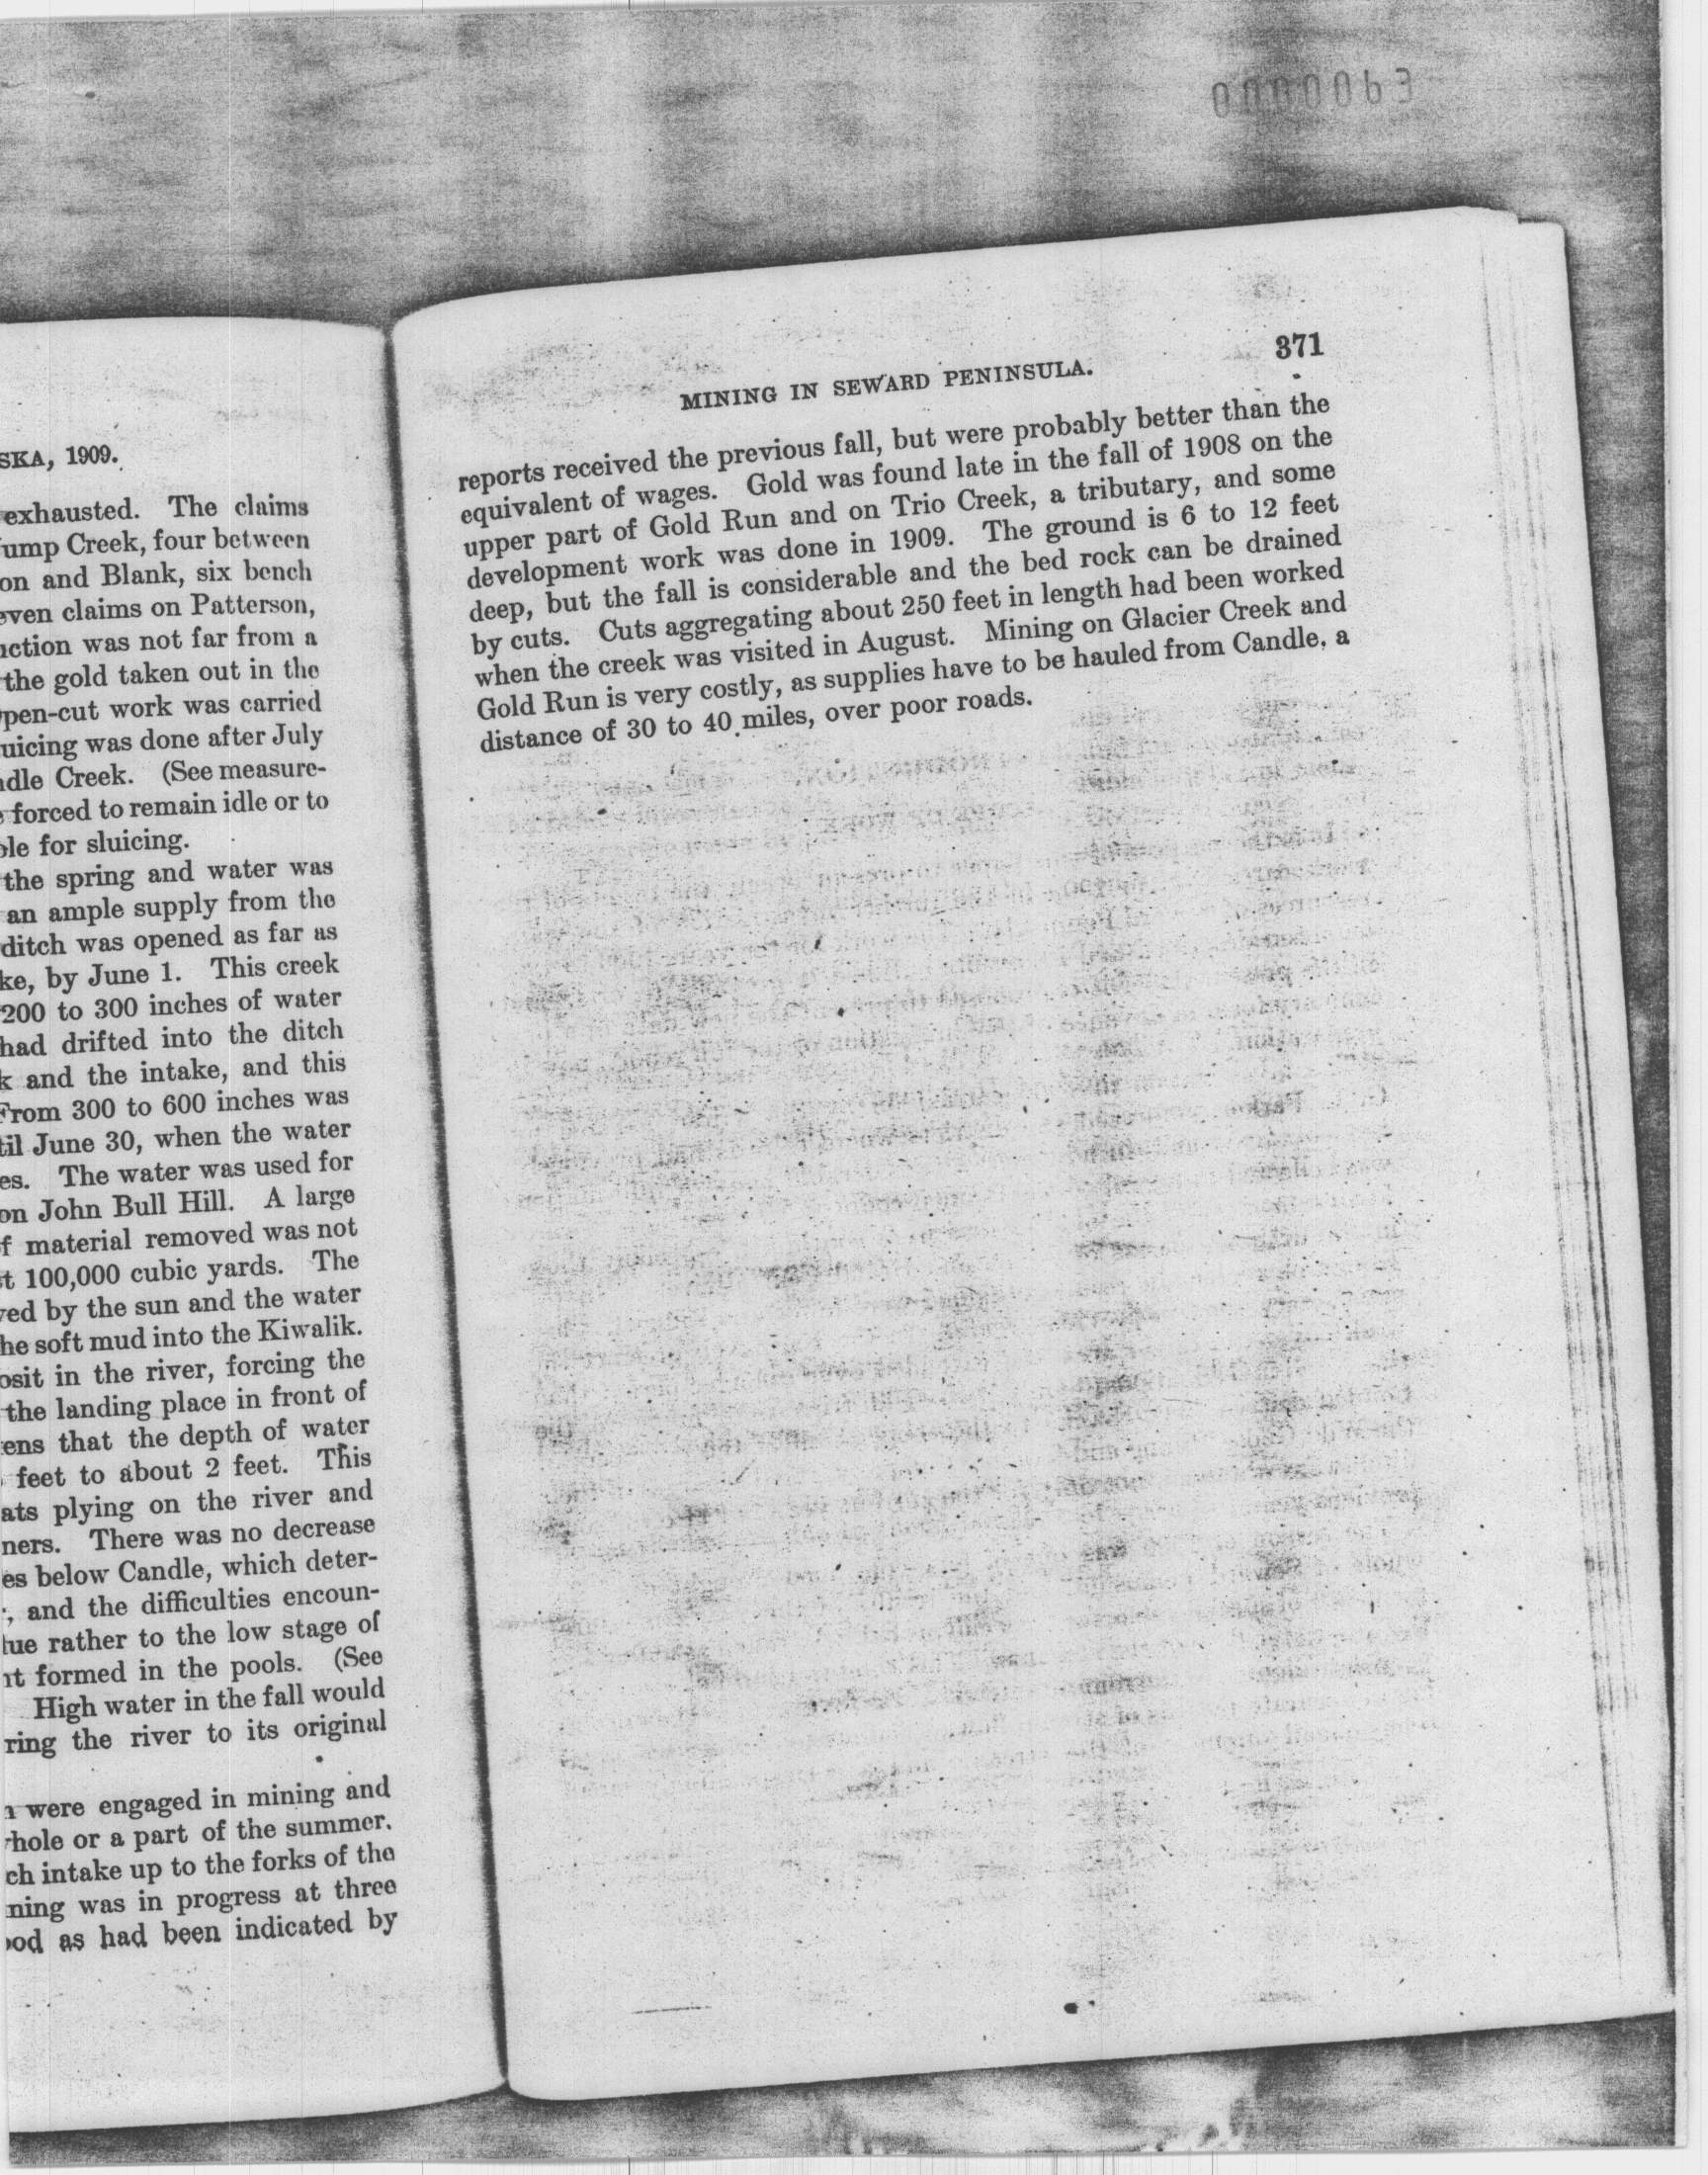 0000063
SKA, 1909.
exhausted. The claims
Jump Creek, four between
on and Blank, six bench
even claims on Patterson,
uction was not far from a
the gold taken out in the
open-cut work was carried
uicing was done after July
ndle Creek. (See measure-
forced to remain idle or to
ble for sluicing.
the spring and water was
an ample supply from the
ditch was opened as far as
ke, by June 1. This creek
200 to 300 inches of water
had drifted into the ditch
k and the intake, and this
From 300 to 600 inches was
til June 30, when the water
es. The water was used for
on John Bull Hill. A large
f material removed was not
t 100,000 cubic yards. The
ved by the sun and the water
he soft mud into the Kiwalik.
osit in the river, forcing the
the landing place in front of
ens that the depth of water
feet to about 2 feet. This
ats plying on the river and
ners. There was no decrease
es below Candle, which deter-
, and the difficulties encoun-
lue rather to the low stage of
nt formed in the pools. (See
High water in the fall would
ring the river to its original
n were engaged in mining and
hole or a part of the summer.
ch intake up to the forks of the
ning was in progress at three
ood as had been indicated by
MINING IN SEWARD PENINSULA. 371
reports received the previous fall, but were probably better than the
equivalent of wages. Gold was found late in the fall of 1908 on the
upper part of Gold Run and on Trio Creek, a tributary, and some
development work was done in 1909. The ground is 6 to 12 feet
deep, but the fall is considerable and the bed rock can be drained
by cuts. Cuts aggregating about 250 feet in length had been worked
when the creek was visited in August. Mining on Glacier Creek and
Gold Run is very costly, as supplies have to be hauled from Candle, a
distance of 30 to 40 miles, over poor roads.